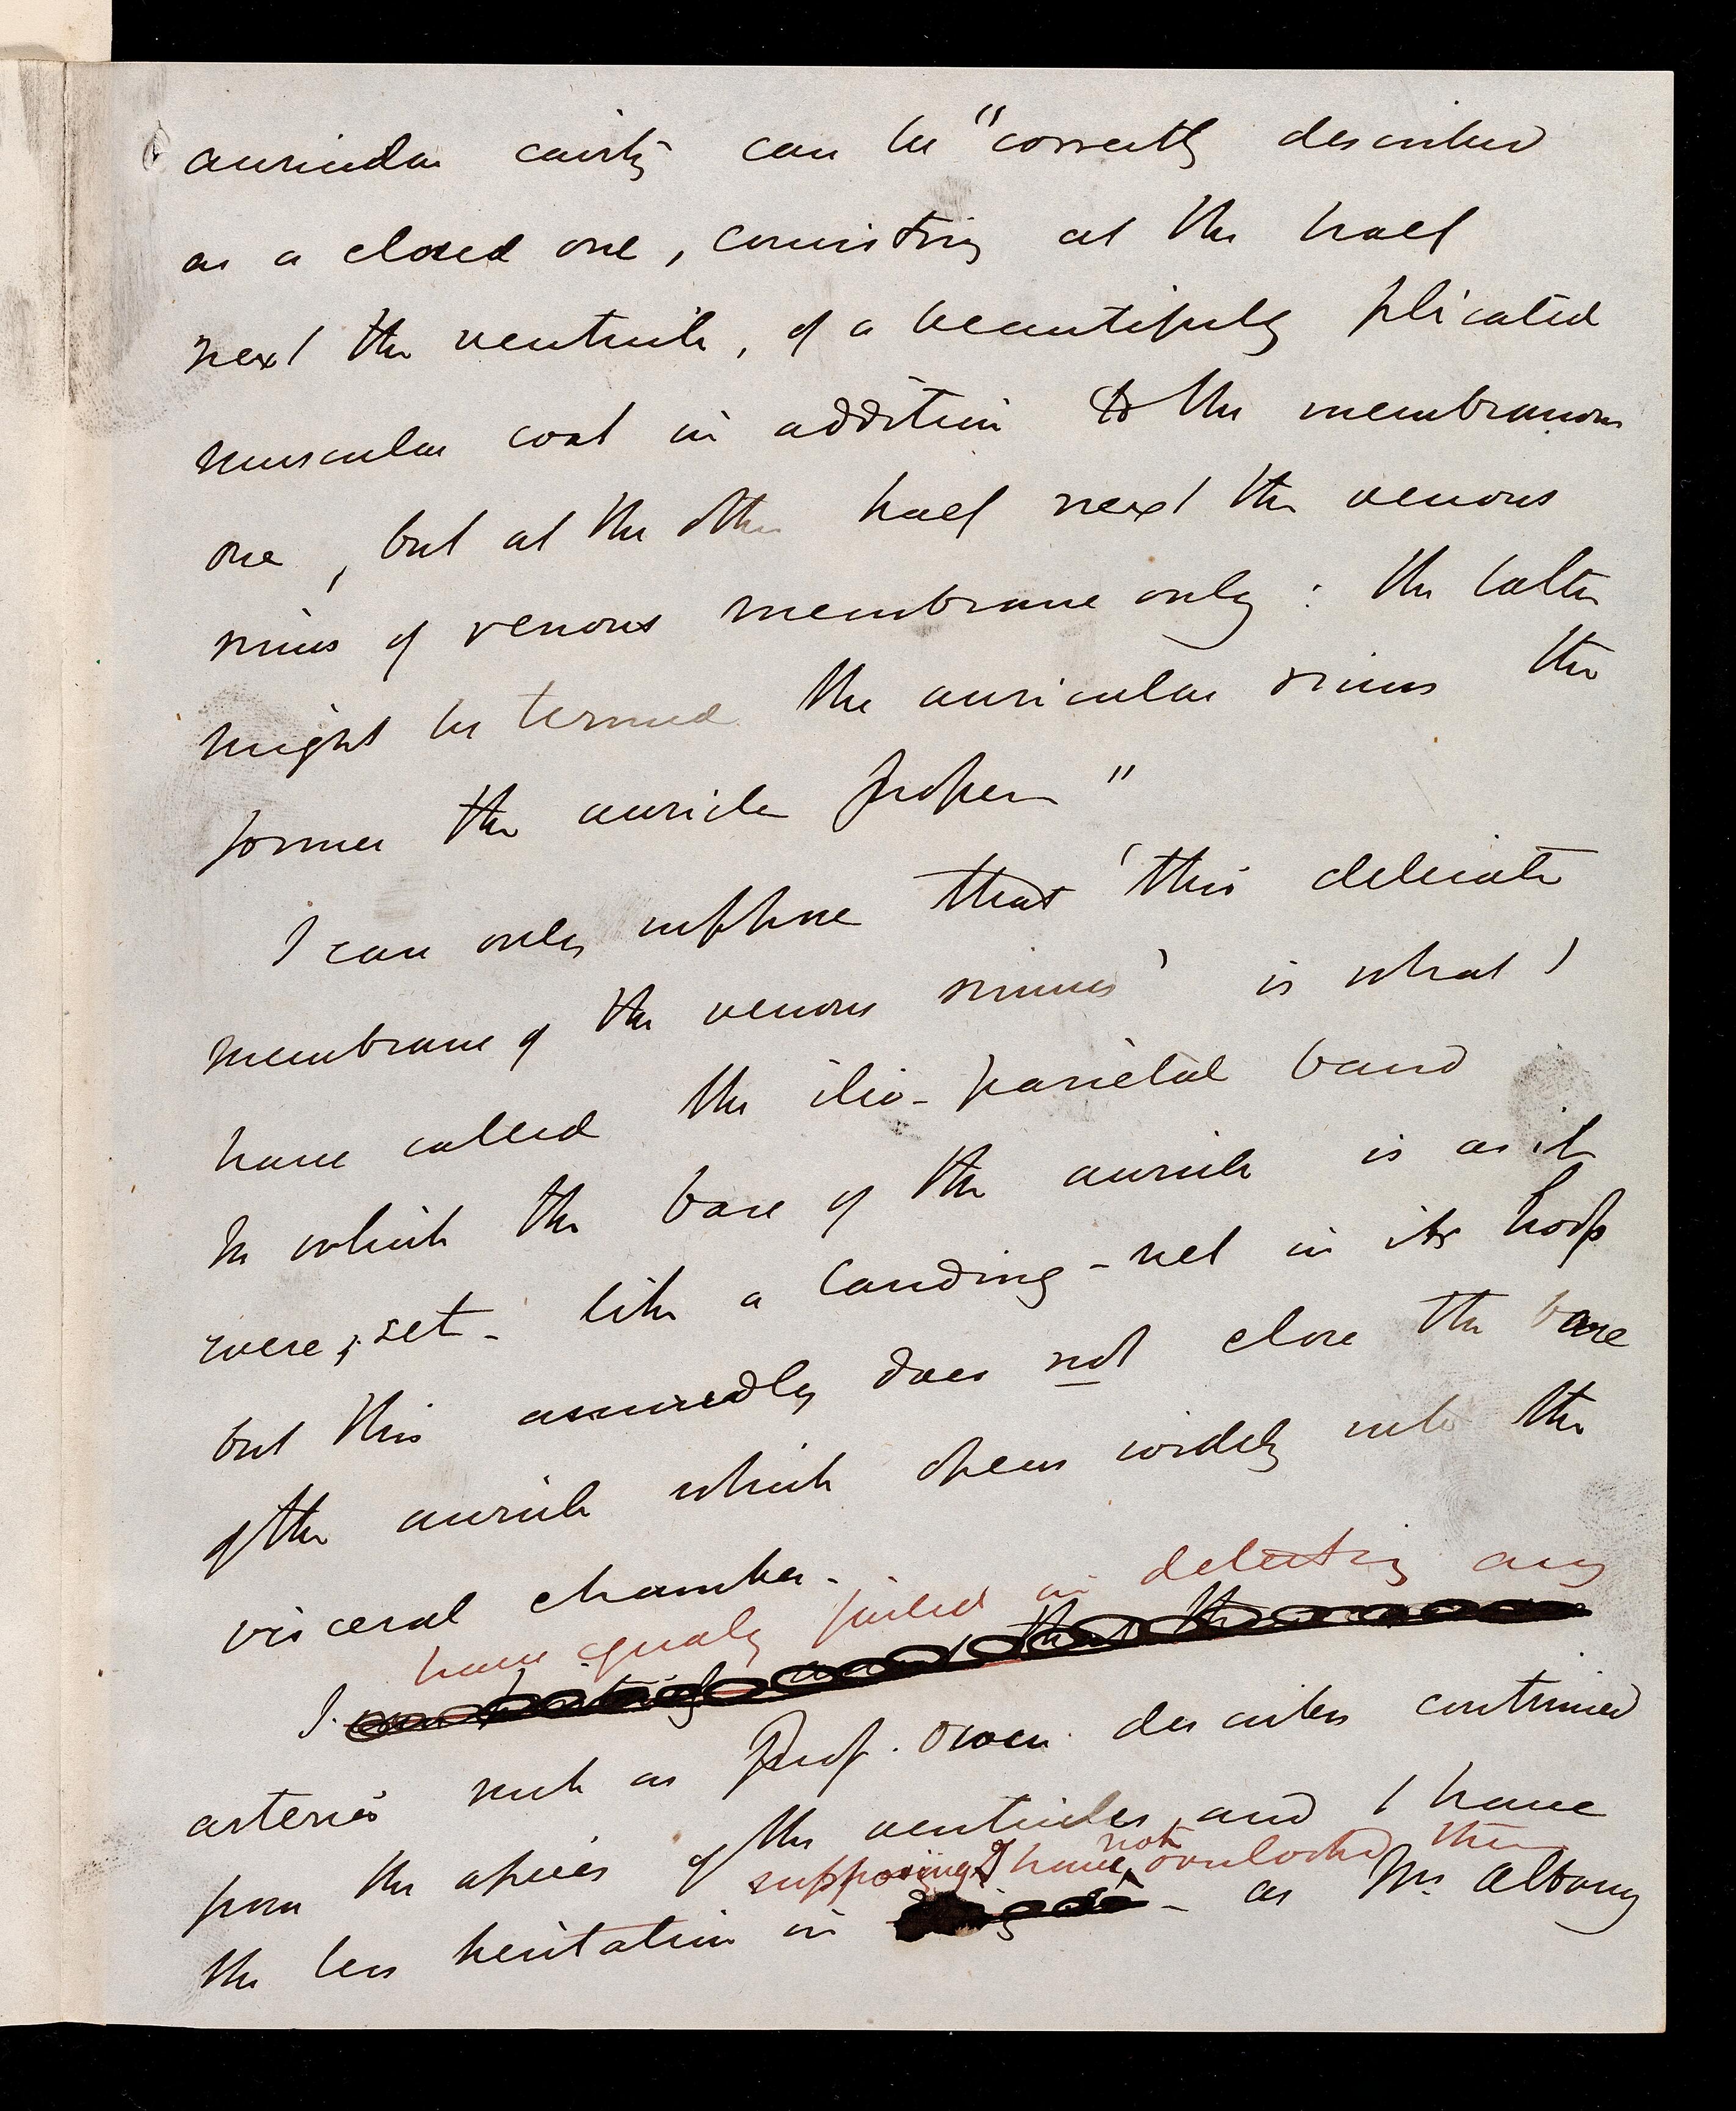 auricular cavity can be "correctly described
as a closed one, consisting at the half
next the ventricle, of a beautifully plicated
muscular coat in addition to the membranous
one, but at the other half next the venous
sinus of venous membrane only: the latter
might be termed the auricular sinus the
former the auricle proper"
I can only suppose that 'this delicate
membrane of the venous sinus' is what I
have called the ilio-parietal band
In which the base of the auricle is as it
were, set - like a landing-net in its hoop
but this assuredly does not close the base
of the auricle which opens widely into the
visceral chamber.
have equally failed in detecting any
I
arteries such as Prof. Owen describes continued
from the apices of the ventricles, and I have
supposing I have not overlooked them
the less hesitation in - as Mr. Albany